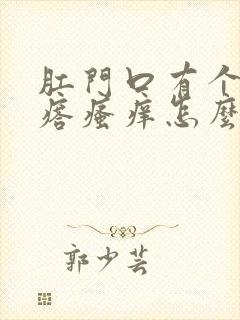 肛門口有个
痞瘙痒怎麽
郭少芸